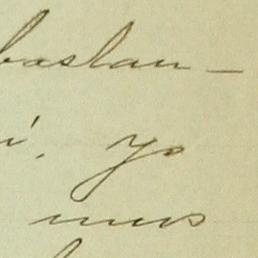 baslan-
i. Yo
mus